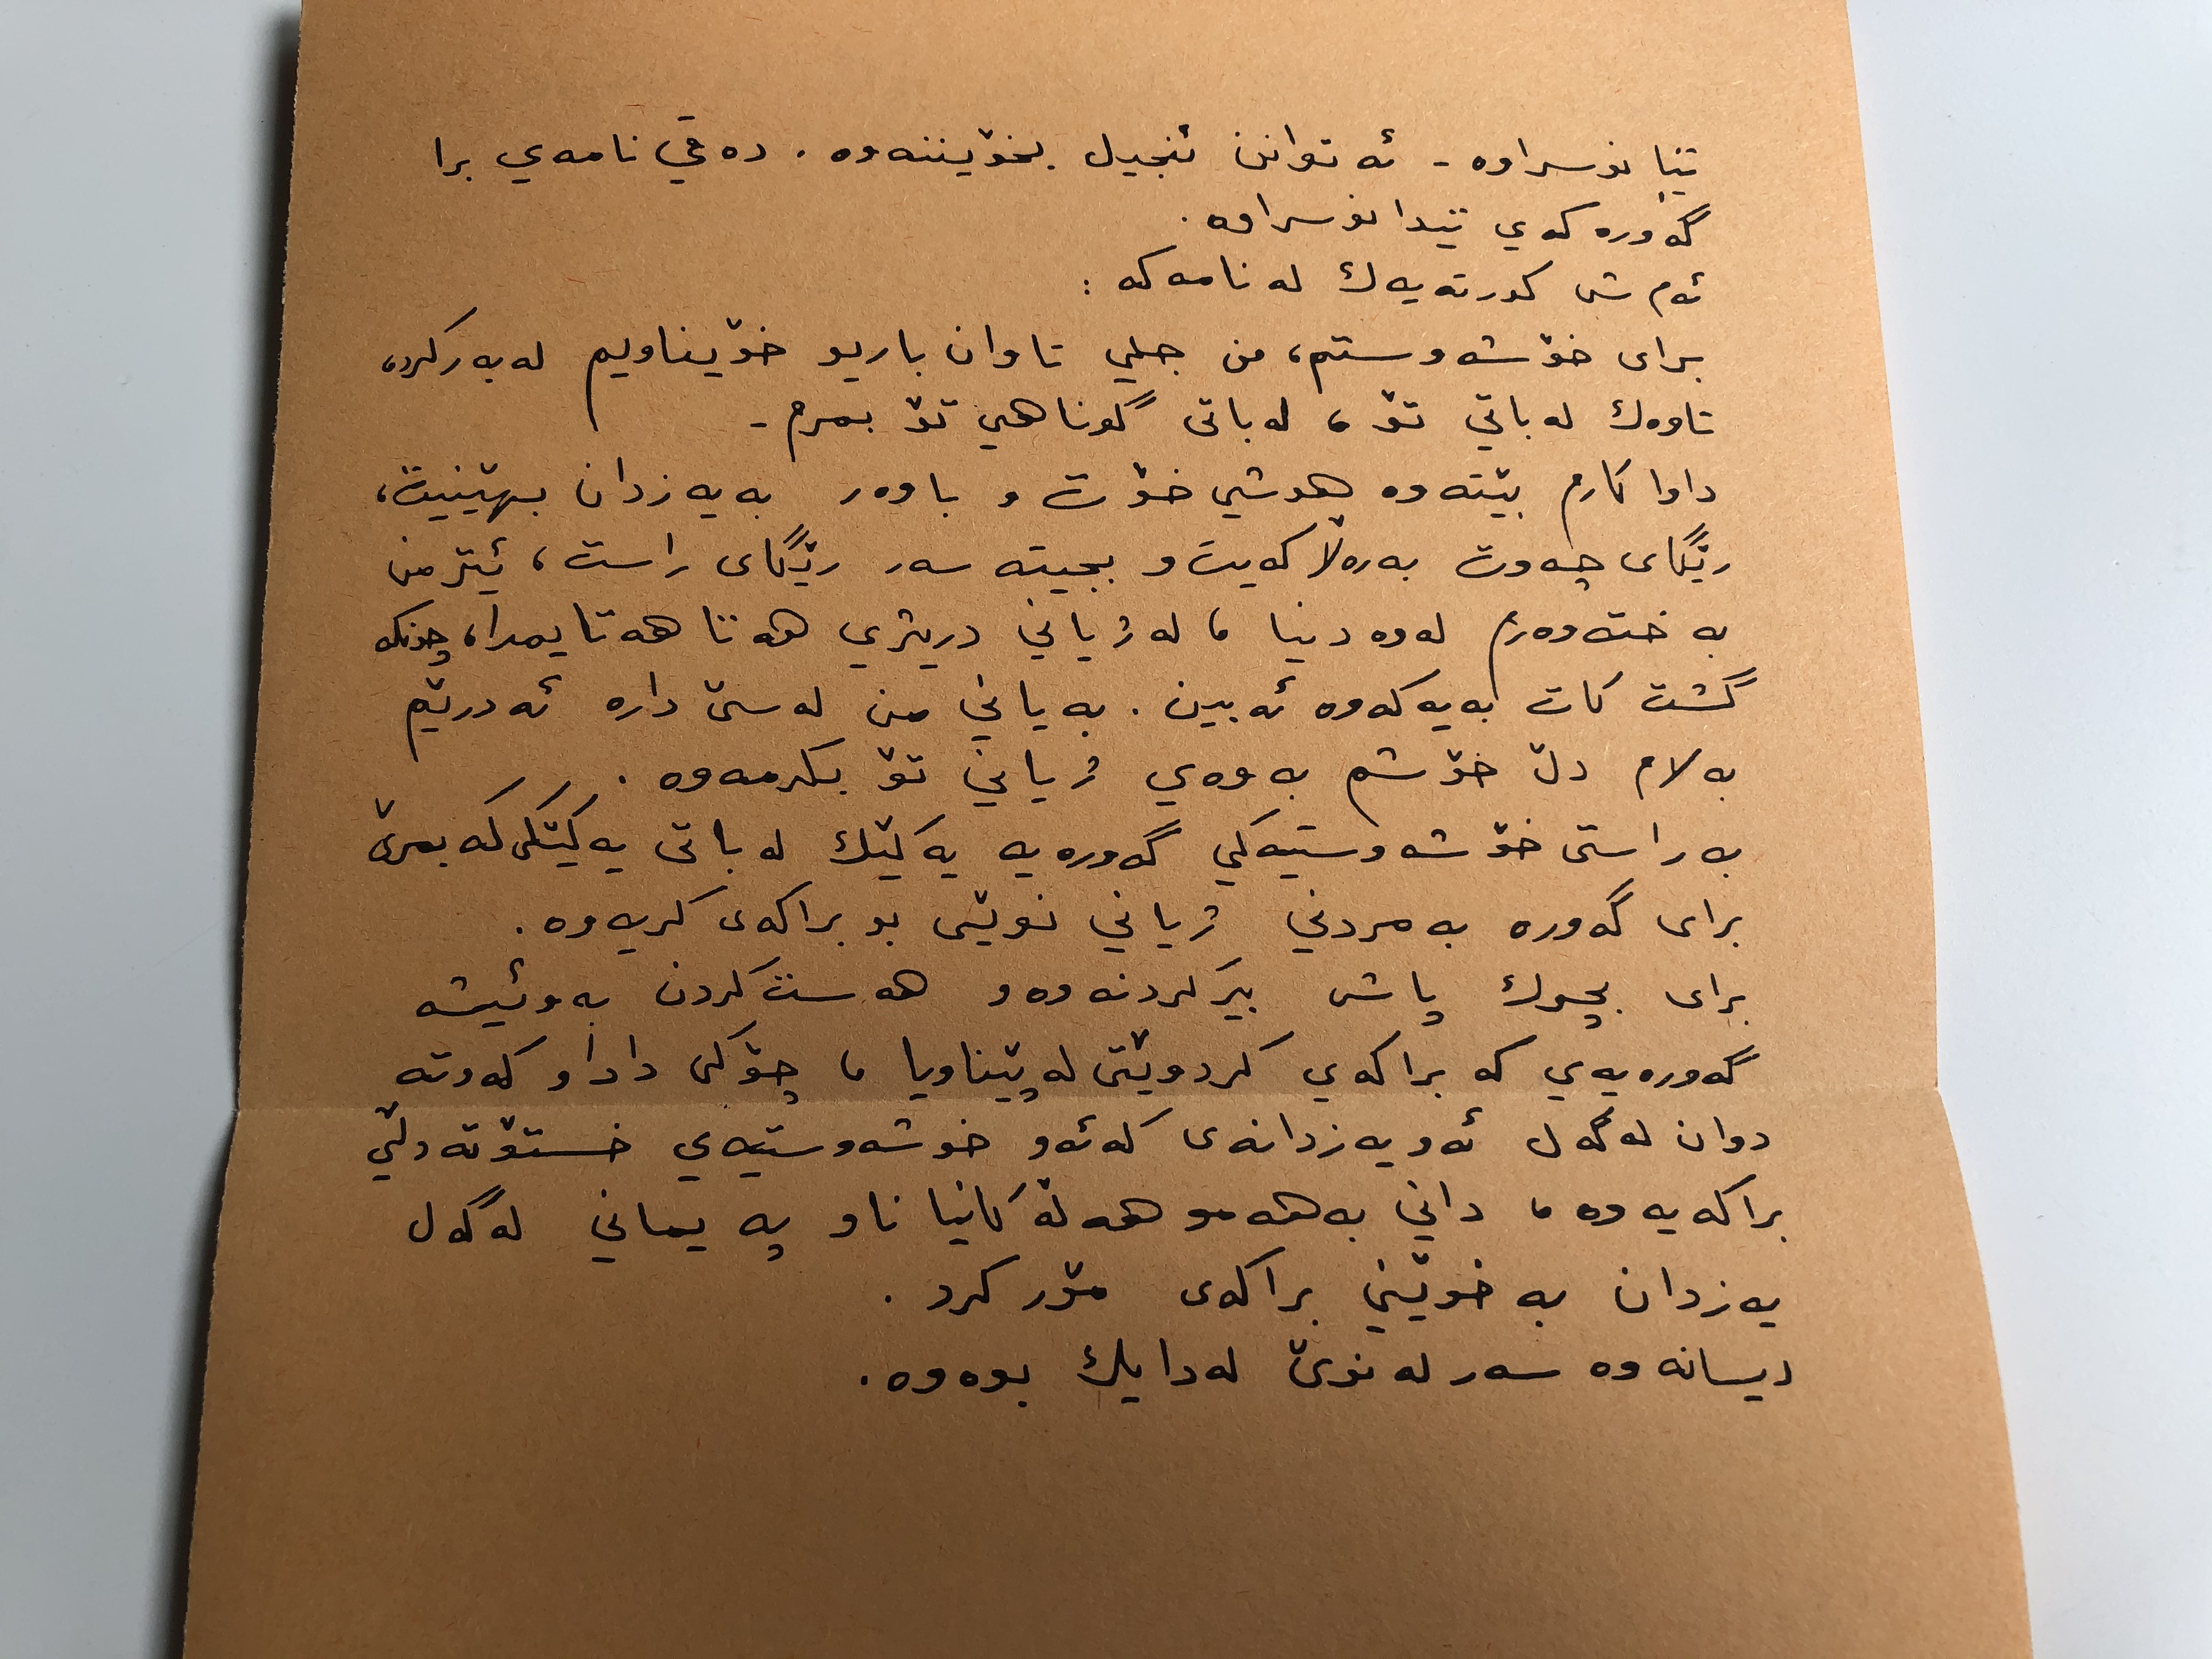 تێیا نوسراوە - ئەتوانن ئنجیل بخۆیننەوە . دەقي نامەي برا
گەورەکەي تێدا نوسراوە .
ئەم ش کورتەیەك لە نامەکە :
برای خۆشەوستم، من جلي تاوان باریو خۆیناویم لەبەرکرد،
تاوەك لەباتي تۆ ، لەباتی گوناهي تۆ بمرم -
داوا کارم بێتەوە هوشي خۆت و باوەر بەیەزدان بهێنیت،
رێگای چەوت بەرەڵا کەیت و بجیتە سەر رێگای راست، ئیتر من
بەختەوەرم لەوە دنیا ، لەژیاني دریژي هەتا هەتایمدا، چونکە
گشت کات بەیەکەوە ئەبین . بەیاني من لەسێ دارە ئەدرێم
بەلام دڵ خۆشم بەوەي ژیاني تۆ بکرمەوە .
بەراستی خۆشەوستیەکي گەورەیە یەکێك لەباتی یەکێکی کە بمرێ
برای گەورە بەمردني ژیاني نوێی بو براکەی کریەوە .
برای بچوك پاش بیرکردنەوەو هەست کردن بەوئیشە
گەورەیەي کە براکەي کردوێتی لەپێناویا ، چۆکی داداو کەوتە
دوان لەگەل ئەویەزدانەی کەئەو خوشەوستیەي خستۆتە دڵي
براکەیەوە ، داني بەهەمو هەڵەکانیا ناو پەیماني لەگەل
یەزدان بە خوێني براکەی مۆر کرد .
دیسانەوە سەر لەنوێ لەدایك بوەوە .